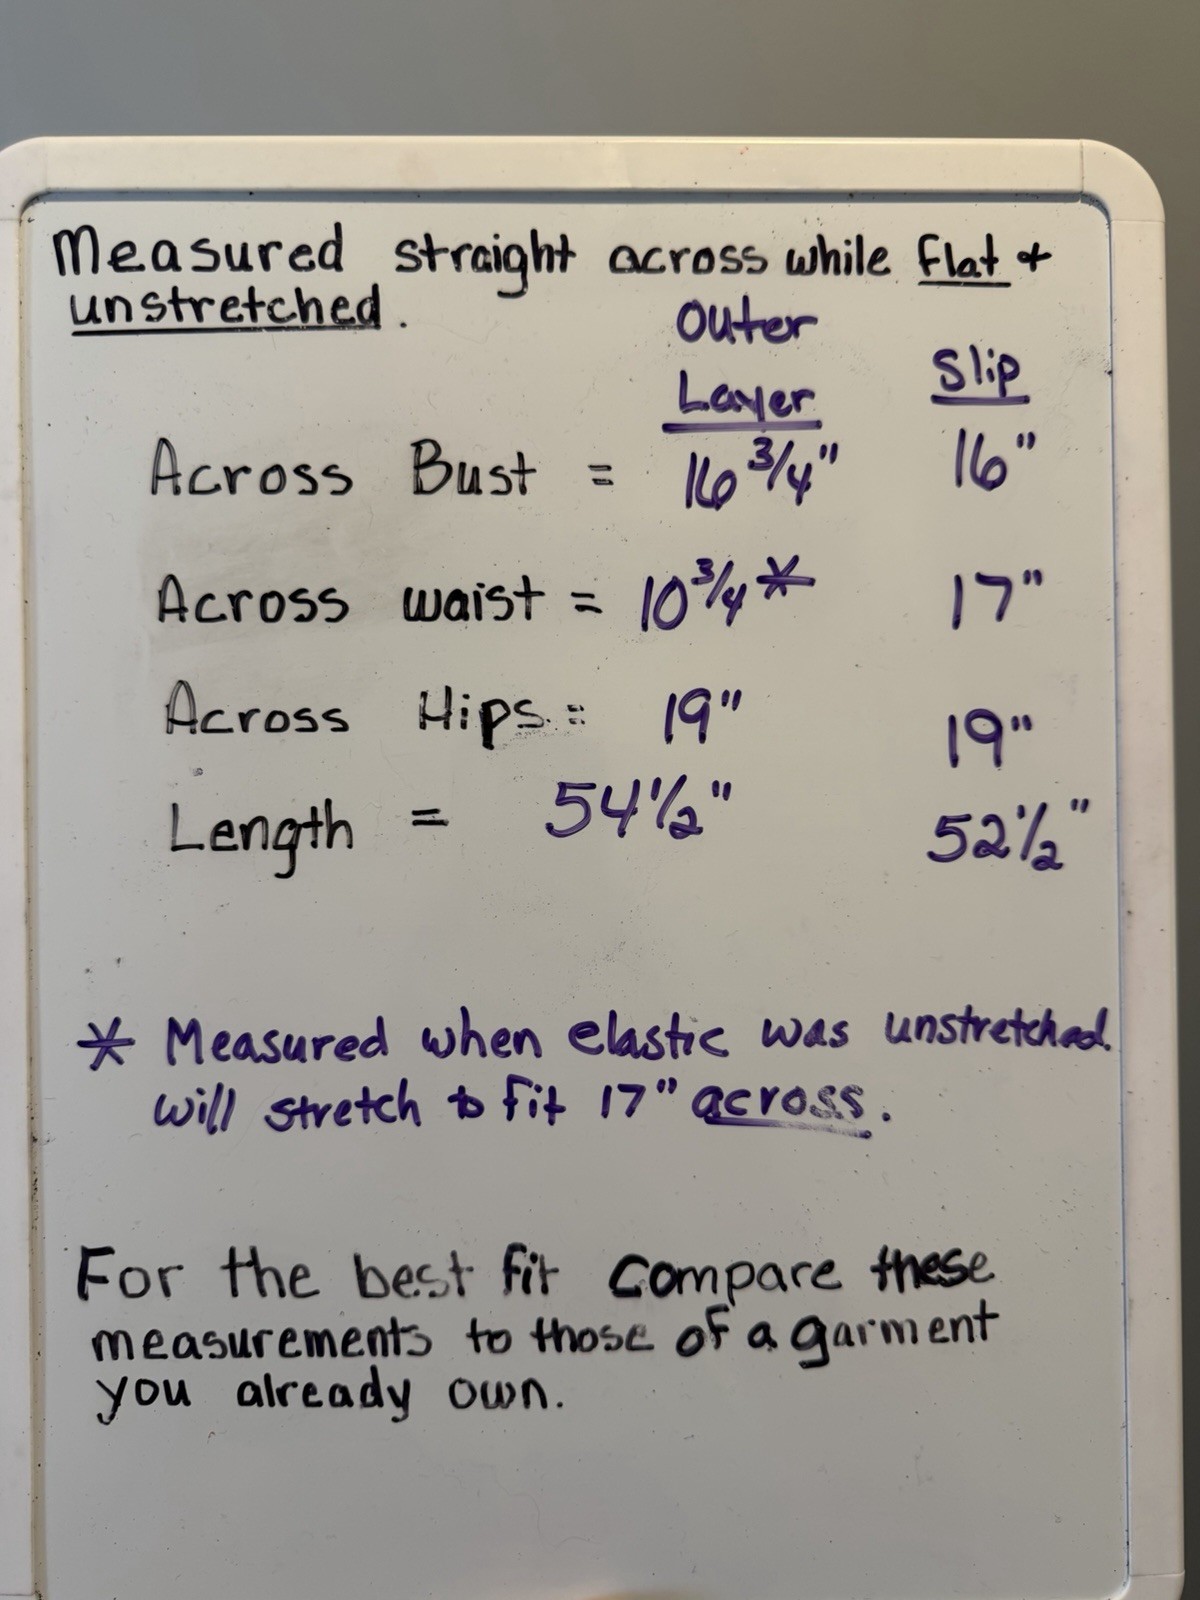 Measured straight across while flat &
unstretched.
Outer
Layer Slip
Across Bust = 16 3/4" 16"
Across waist = 10 3/4 * 17"
Across Hips = 19" 19"
Length = 54 1/2" 52 1/2"
* Measured when elastic was unstretched.
will stretch to fit 17" across.
For the best fit compare these
measurements to those of a garment
you already own.